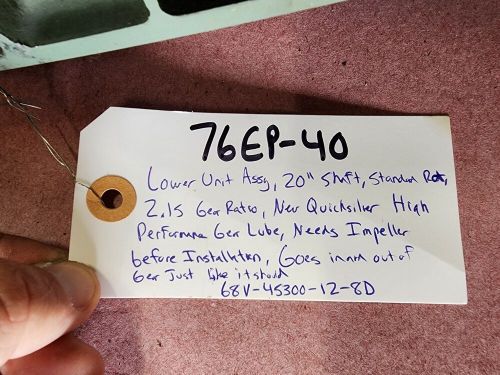 76EP-40
Lower Unit Assy, 20" Shaft, Standard Rot,
2.15 Gear Ratio, New Quicksilver High
Performance Gear Lube, Needs Impeller
before Installation, Goes in and out of
Gear Just like it should
68V-45300-12-8D